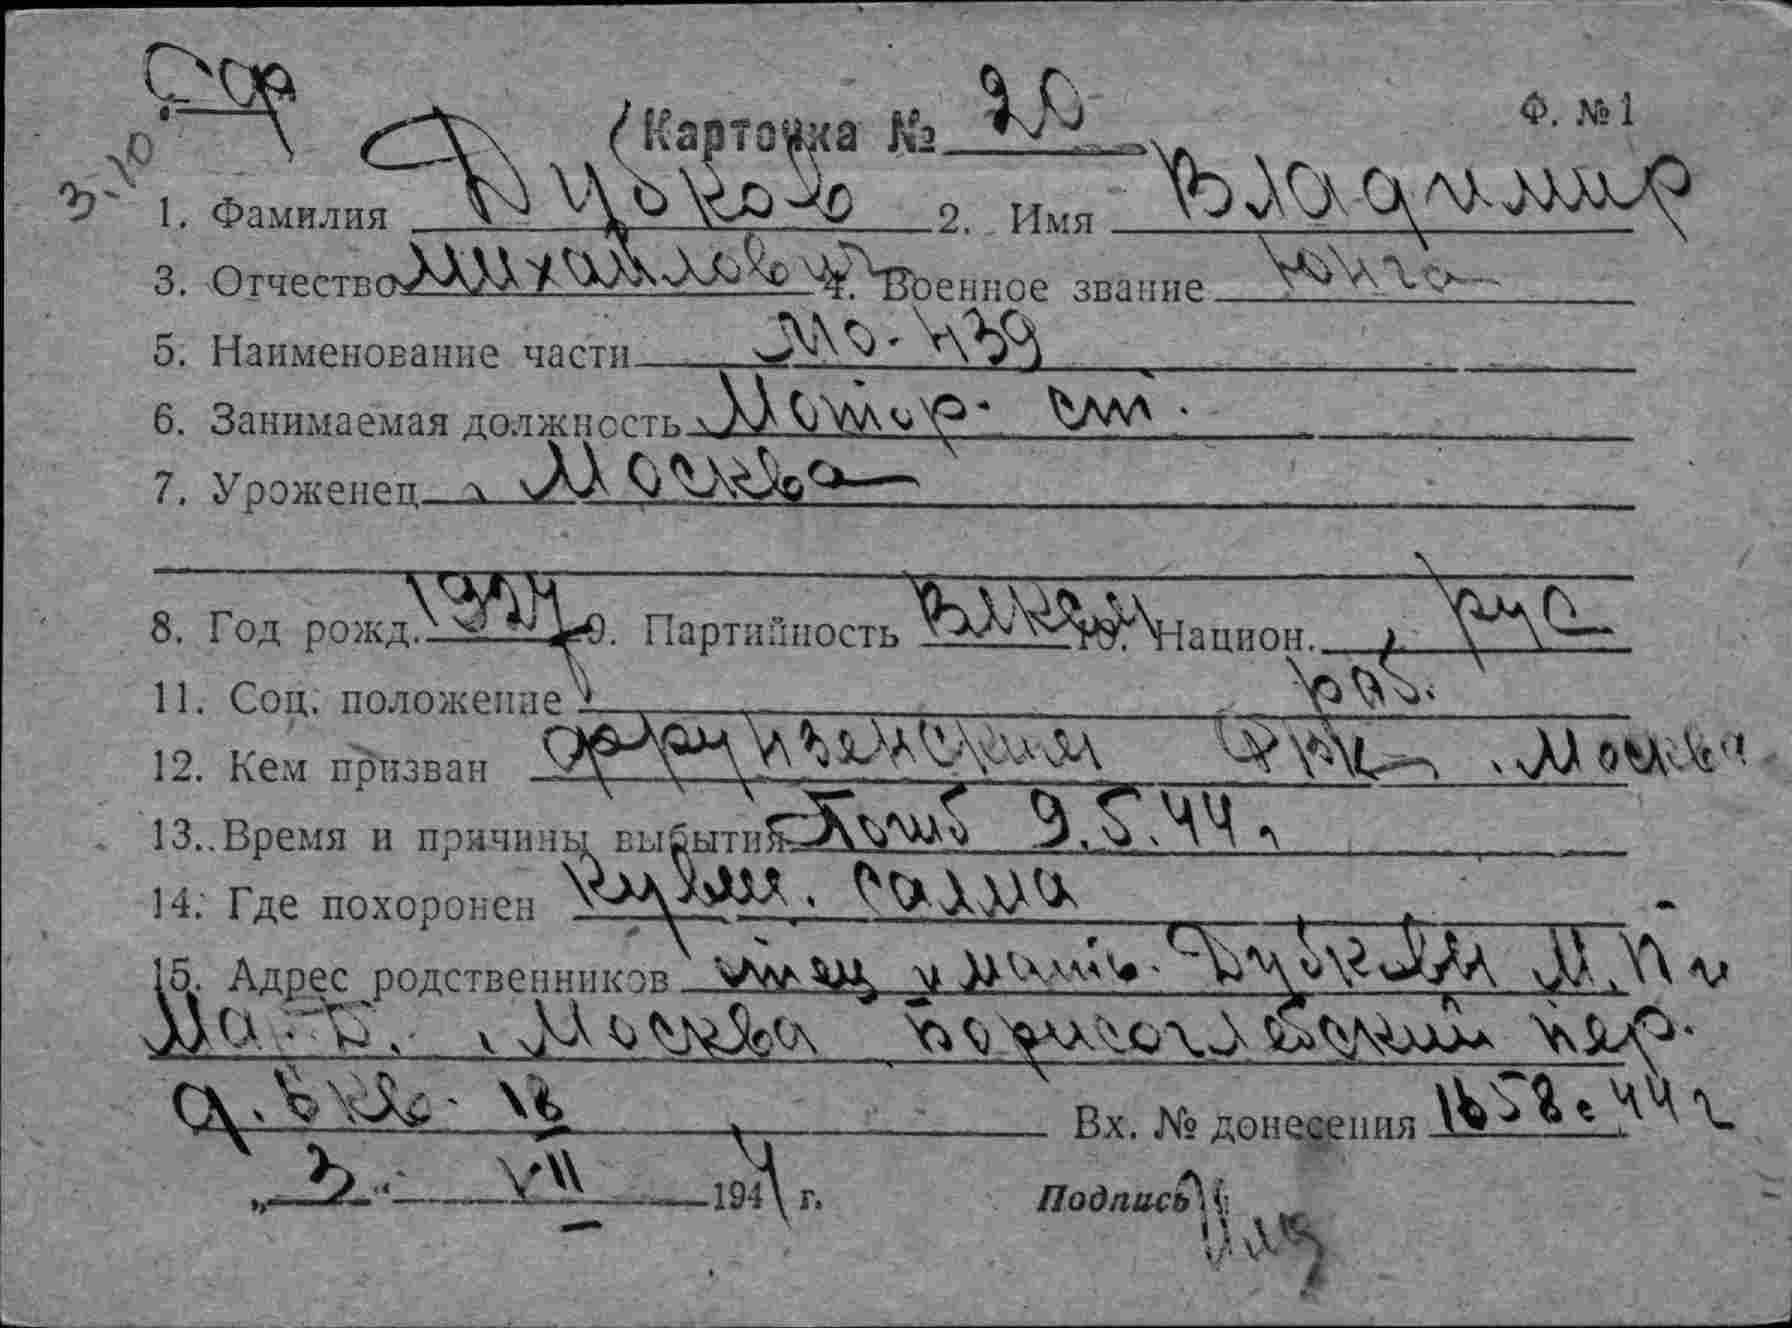 Карточка № 20
Ф. № 1
1. Фамилия Дубково 2. Имя Владимир
3. Отчество Михайлович 4. Военное звание юнга
5. Наименование части МО-439
6. Занимаемая должность Мотор. ст.
7. Уроженец г. Москва
8. Год рожд. 9. Партийность ВЛКСМ 10. Национ. рус
11. Соц. положение раб.
12. Кем призван Фрунзенским РВК г. Москва
13. Время и причины выбытия Погиб 9.5.44 г
14. Где похоронен
15. Адрес родственников отец и мать М. П. и
г. Москва Борисоглебский пер.
д. 6 кв. 16 Вх. № донесения 1658с 44 г
„3“ VII 1944 г. Подпись